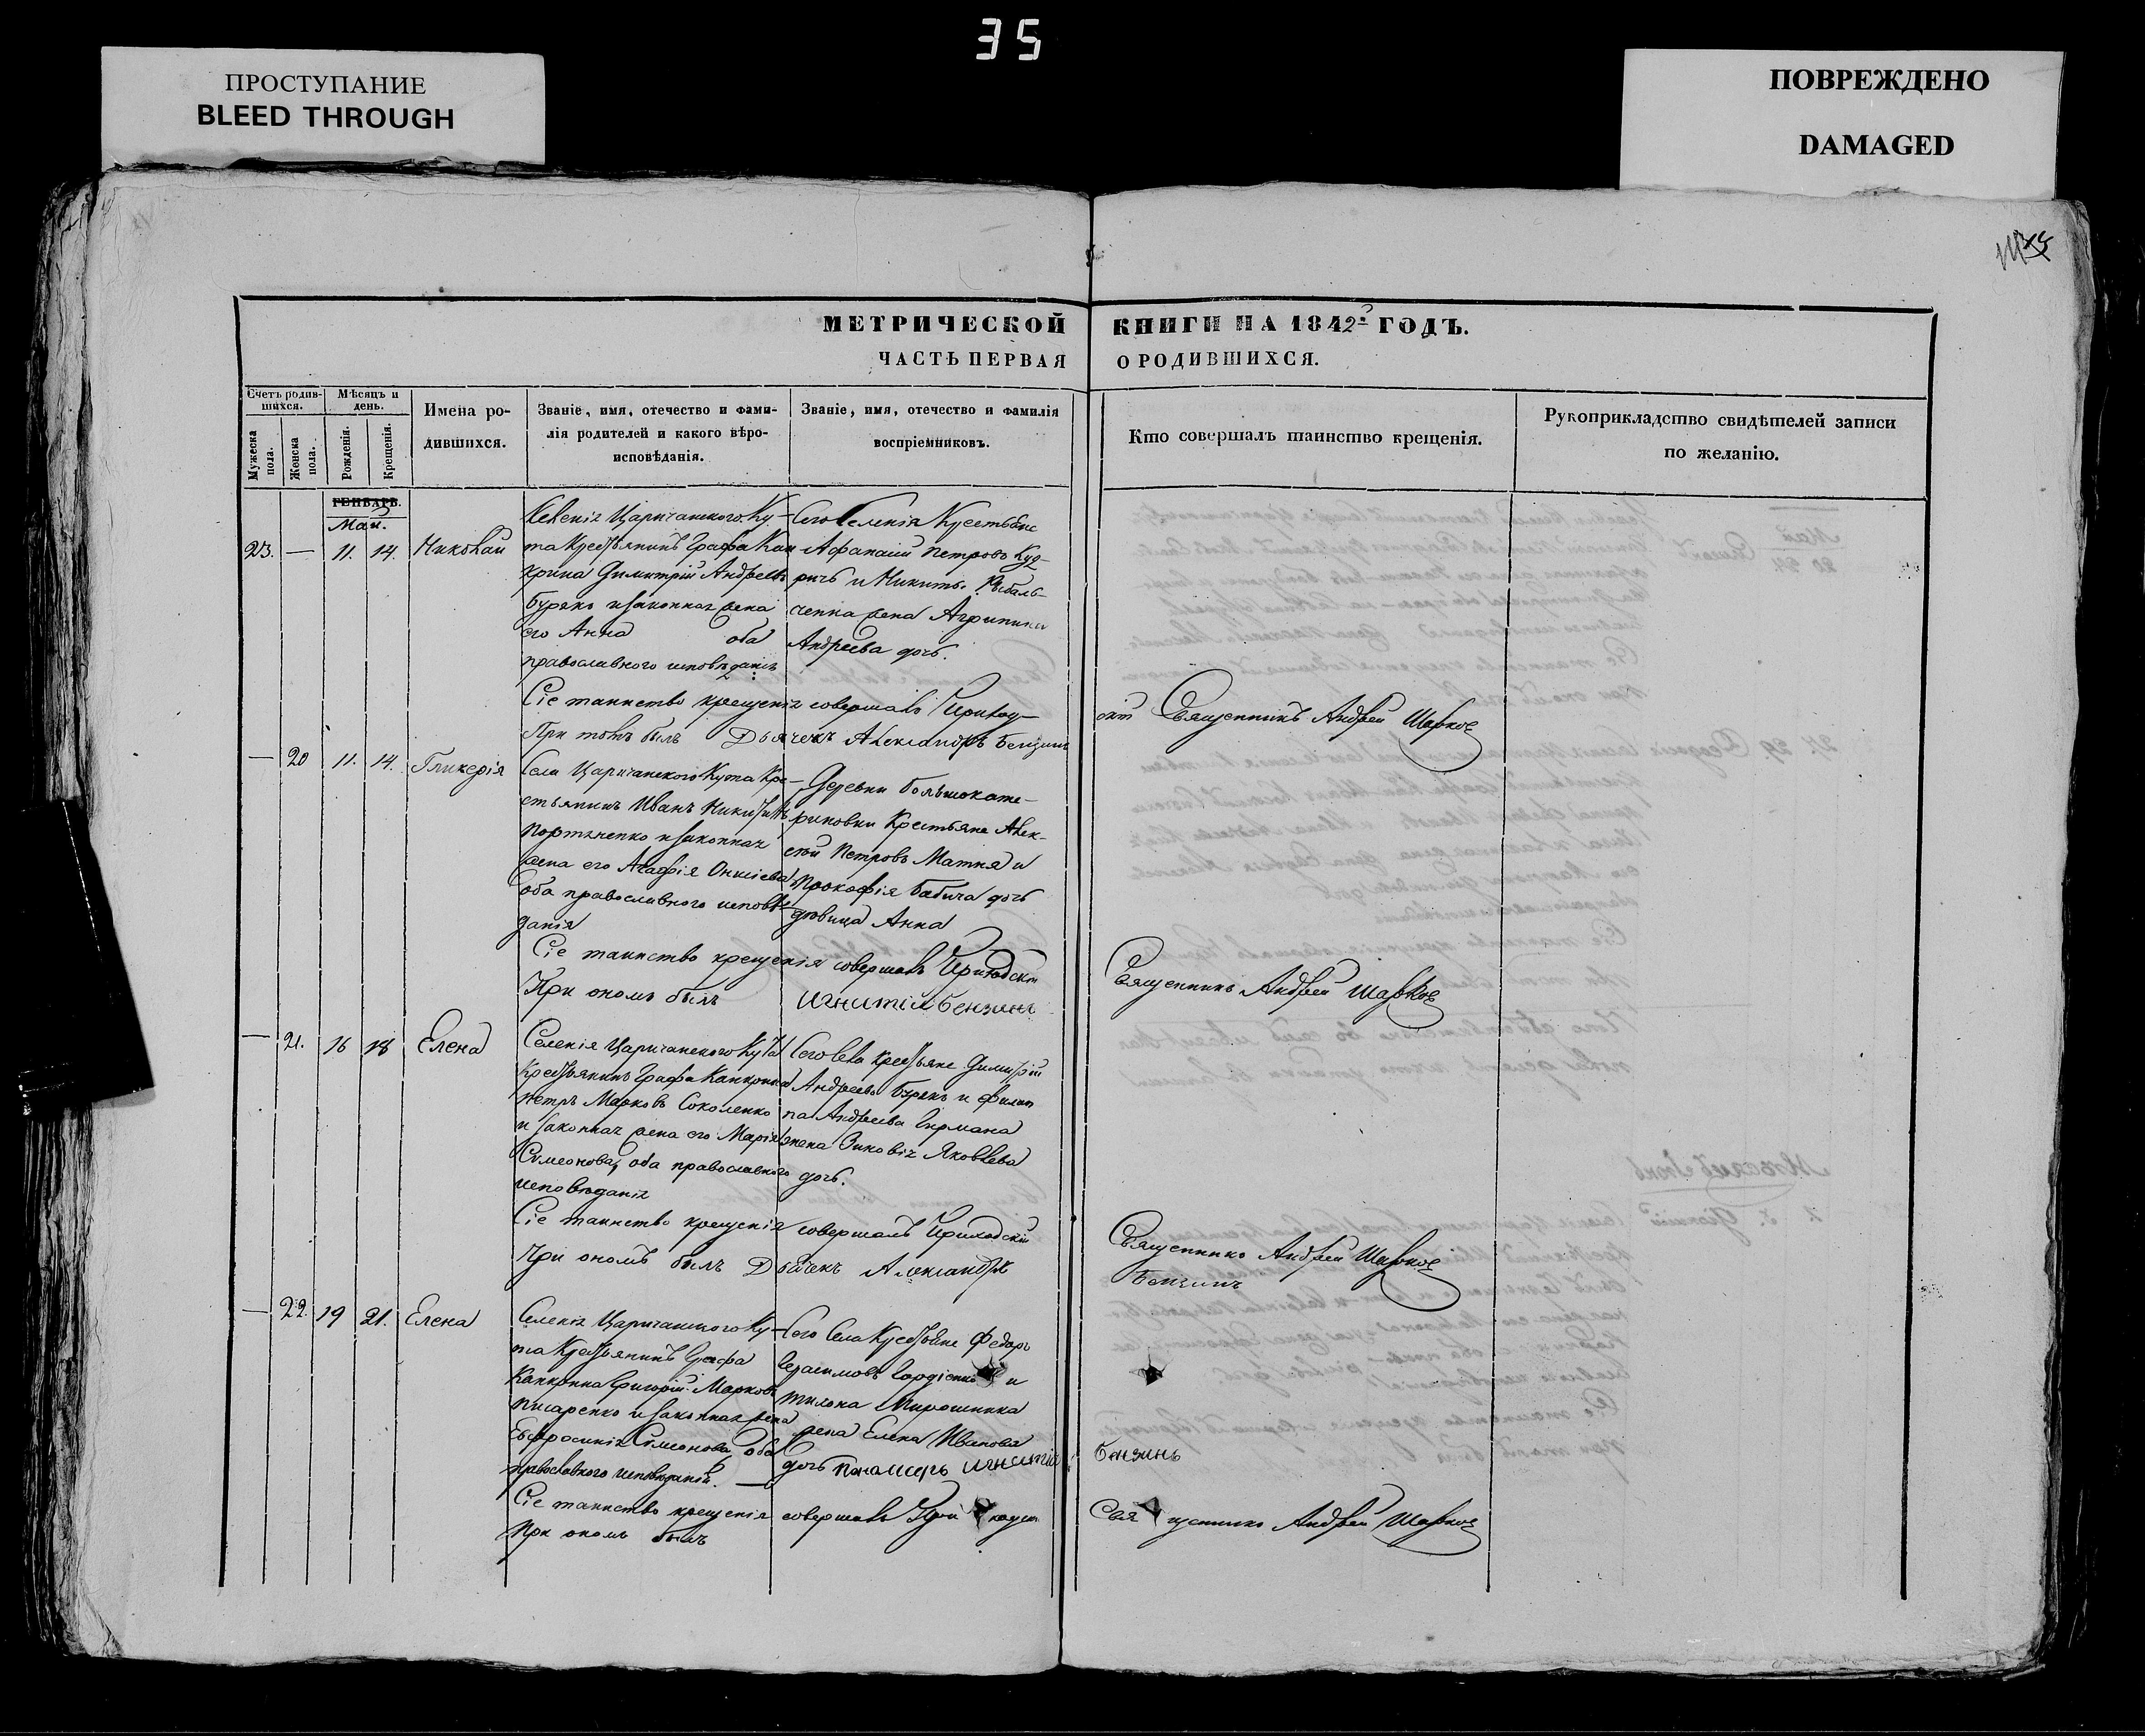 35
ПРОСТУПАНИЕ
BLEED THROUGH
ПОВРЕЖДЕНО
DAMAGED
МЕТРИЧЕСКОЙ КНИГИ НА 1842й ГОДЪ.
ЧАСТЬ ПЕРВАЯ О РОДИВШИХСЯ.
Счетъ родив-
шихся.
Мужеска пола.
Женска пола.
Мѣсяцъ и
день.
Рожденія.
Крещенія.
Имена ро-
дившихся.
Званіе, имя, отечество и фами-
лія родителей и какого вѣро-
исповѣданія.
Званіе, имя, отечество и фамилія
воспріемниковъ.
Кто совершалъ таинство крещенія.
Рукоприкладство свидѣтелей записи
по желанію.
ГЕНВАРЬ.
Май.
23. — 11. 14. Николай
Селенія Царичанского Ку-
та Крестьянинъ Графа Кан
крина Димитрій Андреевъ
Бурякъ и законная жена
его Анна оба
православного исповѣданія
Сего селенія Крестьяне
Афанасій Петровъ
и Никиты Рыбаль-
ченка жена Агрипина
Андреева дочь.
Сіе таинство крещенія совершалъ Приход-
скій Священникъ Андрей Шарков
При томъ былъ Дьячекъ Александръ Бензинъ
— 20 11. 14. Гликерія
Села Царичанского Кута Кре-
стьянинъ Иванъ Никитинъ
Портяненко и законная
жена его Агафія Онисіева
оба православного исповѣ-
данія
Деревни Большокате-
риновки Крестьяне Алек-
сѣй Петровъ Матня и
Прокофія Бабича дочь
дѣвица Анна
Сіе таинство крещенія совершалъ Приходскій
Священникъ Андрей Шарков
При ономъ былъ Игнатій Бензинъ
— 21. 16 18 Елена
Селенія Царичанского Кута
Крестьянинъ Графа Канкрина
Петръ Марковъ Соколенко
и законная жена его Марія
Симеонова, оба православного
исповѣданія
Сего Села Крестьяне Димитрій
Андреевъ Бурякъ и Филип
па Андреева Гирмана
жена Зиновія Яковлева
дочь.
Сіе таинство крещенія совершалъ Приходскій
Священникъ Андрей Шарков
При ономъ былъ Дьячекъ Александръ
Бензинъ
— 22. 19 21. Елена
Селенія Царичанского Ку-
та Крестьянинъ Графа
Канкрина Григорій Марковъ
Писаренко и законная жена
Евфросинія Симеонова, оба
православного исповѣданія. —
Сего Села Крестьяне Федоръ
Герасимовъ Гордіенко и
Мирошника
жена Елена Иванова
дочь Пономарь Игнатій
Бензинъ
Сіе таинство крещенія совершалъ Приходскій
Священникъ Андрей Шарков
При ономъ былъ